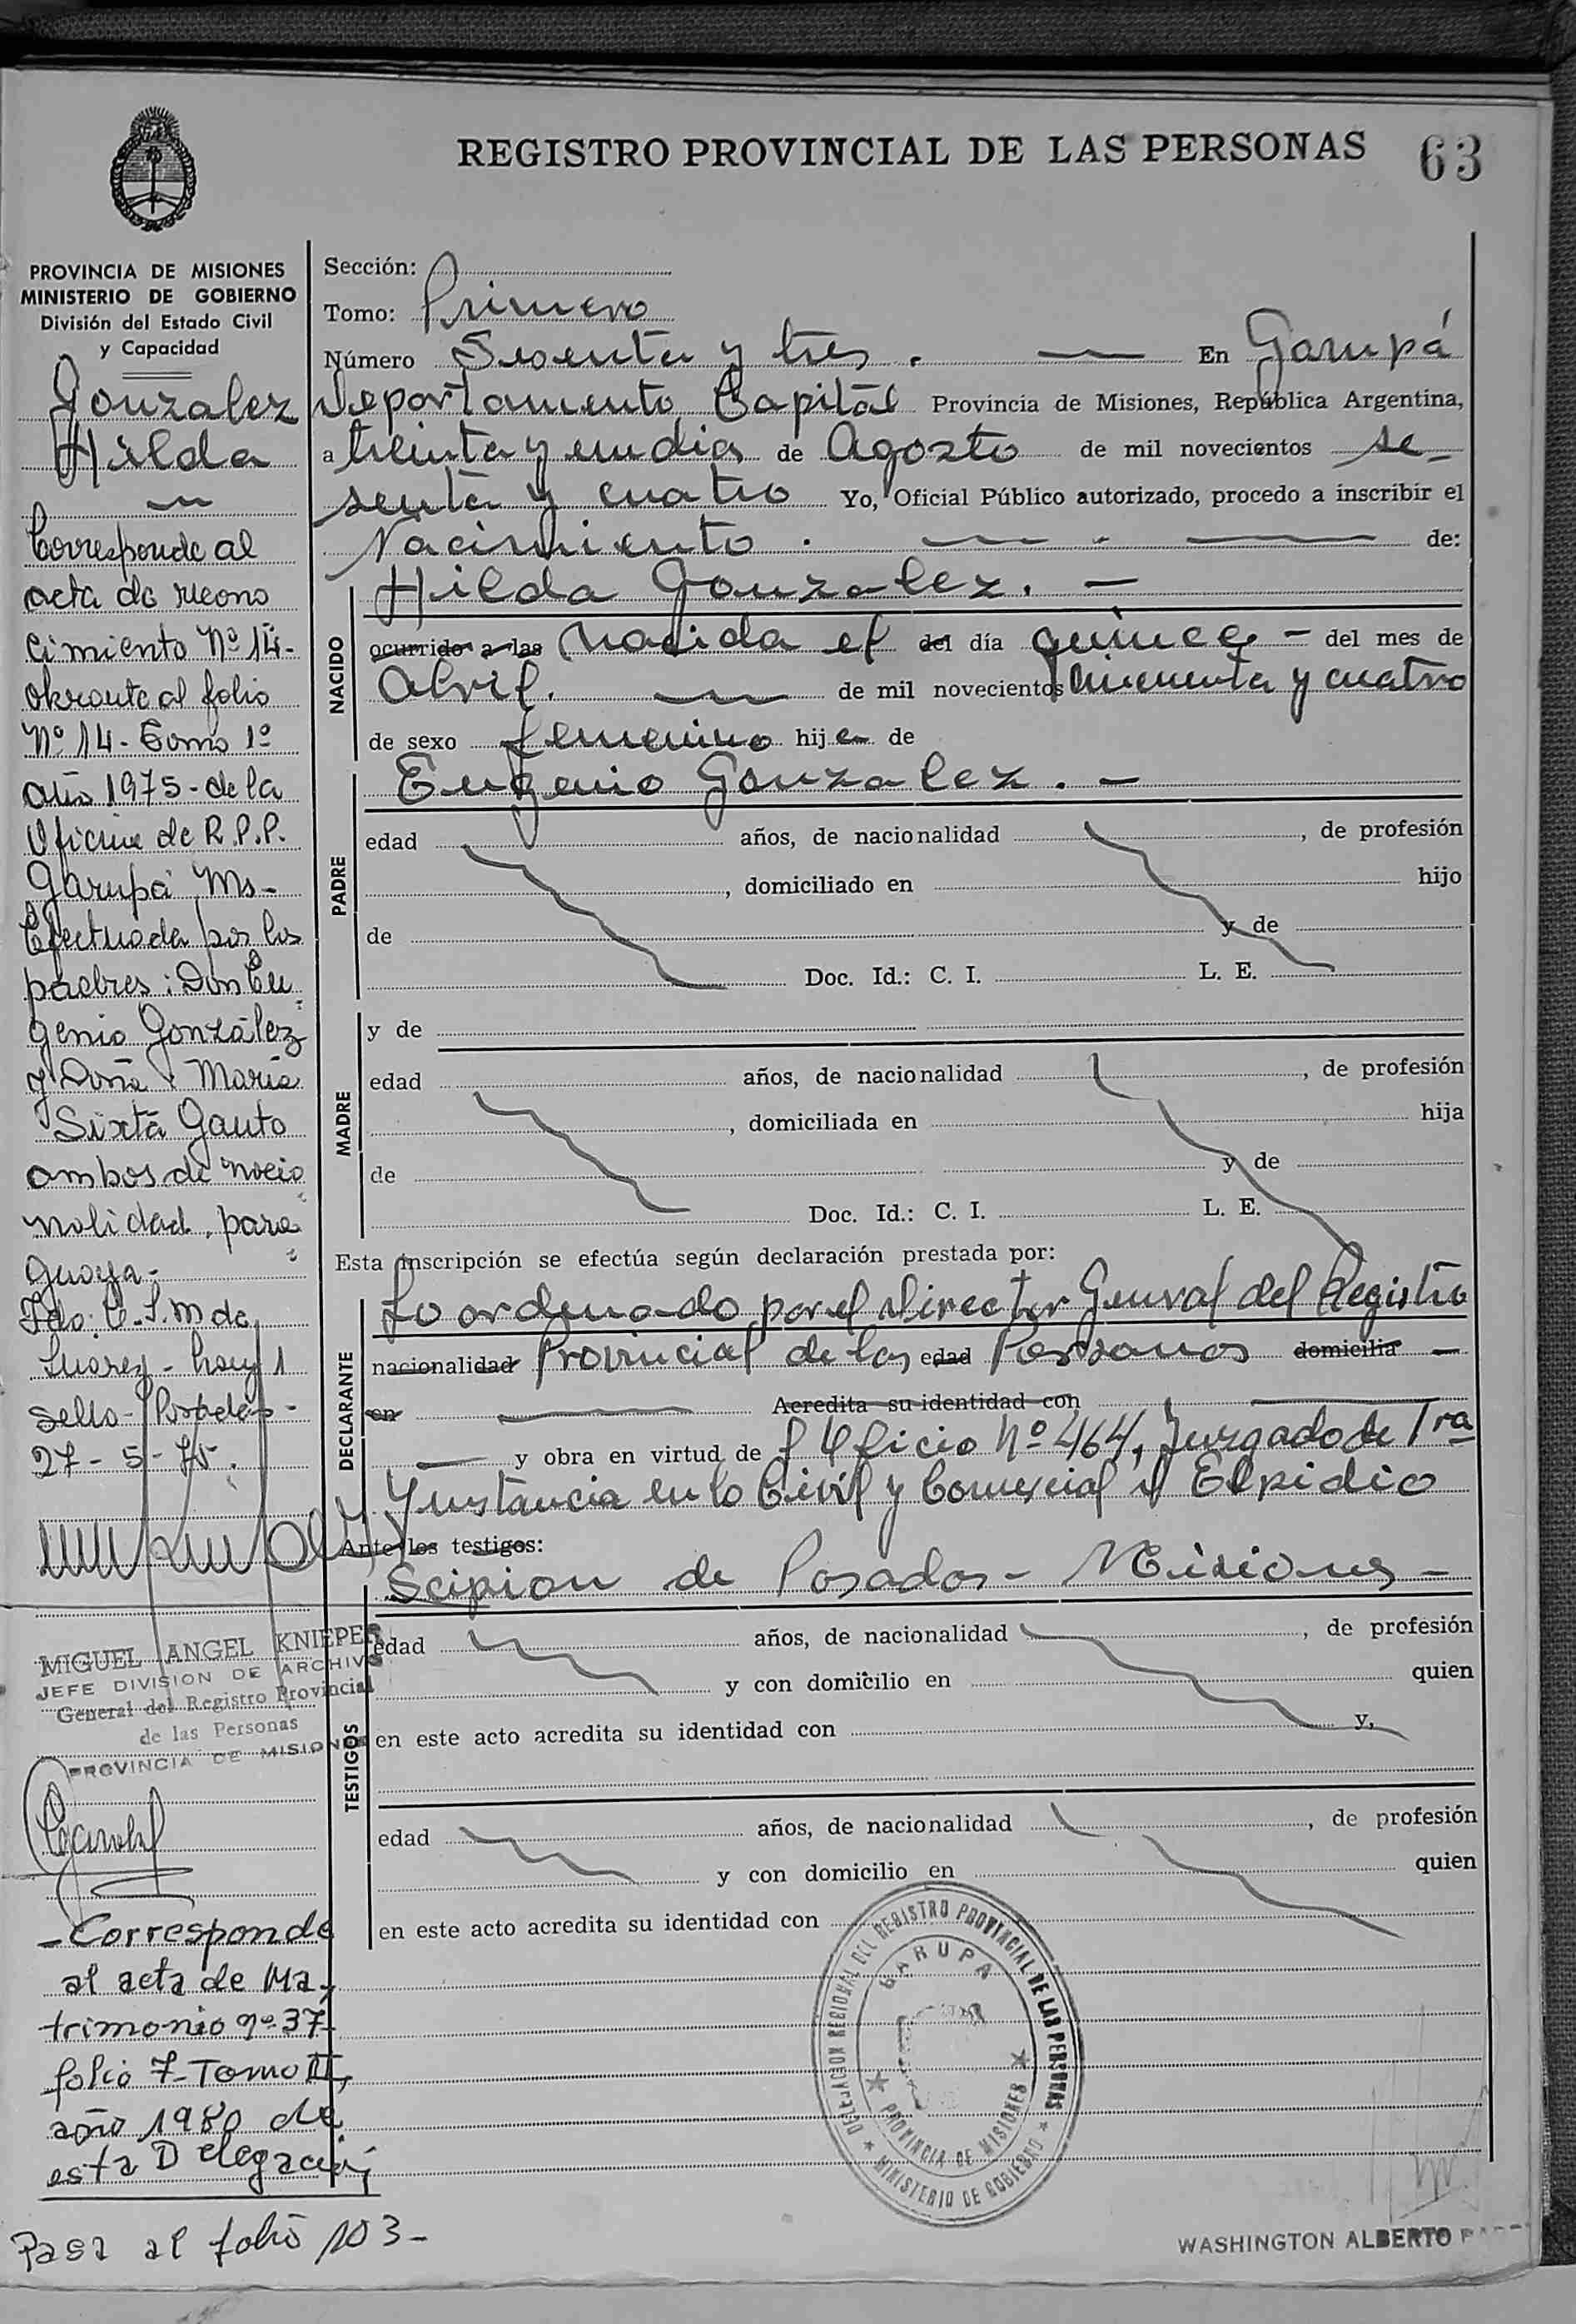 REGISTRO PROVINCIAL DE LAS PERSONAS 63
PROVINCIA DE MISIONES
MINISTERIO DE GOBIERNO
División del Estado Civil
y Capacidad
Gonzalez
Hilda
Corresponde al
acta de recono
cimiento Nº 14-
obrante al folio
Nº 14- Tomo 1º
año 1975- de la
Oficina de R.P.P.
Garupá Ms-
Efectuada por los
padres: Don Eu
genio González
y Doña María
Sixta Gauto
ambos de nacio
nalidad para
guaya-
Fdo: C. S. M de
Suarez - hay 1
sello- Posadas-
27-5-75.
MIGUEL ANGEL KNIEPER
JEFE DIVISION DE ARCHIVO
General del Registro Provincial
de las Personas
PROVINCIA DE MISIONES
-Corresponde
al acta de Ma-
trimonio nº 37
folio 7-Tomo II,
año 1980 de
esta Delegación
Pasa al folio 103-
Sección:
Tomo: Primero
Número Sesenta y tres. En Garupá
Departamento Capital Provincia de Misiones, República Argentina,
a treinta y un dias de Agosto de mil novecientos se-
senta y cuatro Yo, Oficial Público autorizado, procedo a inscribir el
Nacimiento. de:
NACIDO
Hilda Gonzalez. -
ocurrido a las Nacida el del día quince - del mes de
Abril. de mil novecientos cincuenta y cuatro
de sexo femenino hija de
PADRE
Eugenio Gonzalez. -
edad años, de nacionalidad , de profesión
, domiciliado en hijo
de y de
Doc. Id.: C. I. L. E.
MADRE
y de
edad años, de nacionalidad , de profesión
, domiciliada en hija
de y de
Doc. Id.: C. I. L. E.
Esta inscripción se efectúa según declaración prestada por:
DECLARANTE
Lo ordenado por el Director General del Registro
nacionalidad Provincial de las edad Personas domicilia -
en Acredita su identidad con
y obra en virtud de Oficio Nº 464, Juzgado de 1ra
Ynstancia en lo Civil y Comercial Elpidio
Ante los testigos:
TESTIGOS
Scipion de Posadas- Misiones -
edad años, de nacionalidad , de profesión
y con domicilio en quien
en este acto acredita su identidad con y,
edad años, de nacionalidad , de profesión
y con domicilio en quien
en este acto acredita su identidad con
DELEGACION REGIONAL DEL REGISTRO PROVINCIAL DE LAS PERSONAS
GARUPA
PROVINCIA DE MISIONES
MINISTERIO DE GOBIERNO
WASHINGTON ALBERTO